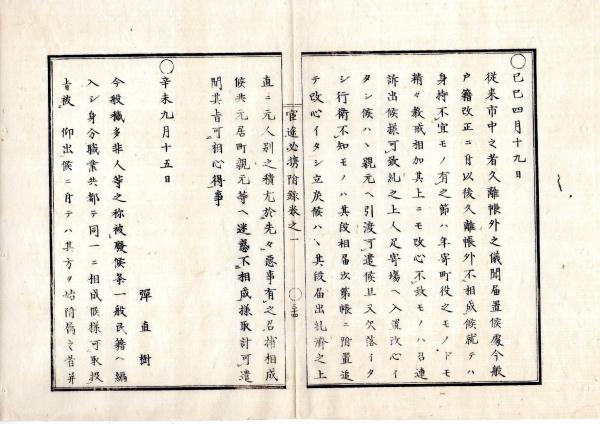 〇己巳四月十九日
従来市中之者久離帳外之儀聞届置候處今般
戸籍改正ニ付以後久離帳外不相成候就テハ
身持不宜モノ有之節ハ年寄町役之モノドモ
精々教戒相加其上ニモ改心不致モノハ召連
訴出候様可致糺之上人足寄場ヘ入置改心イ
タシ候ハヽ親元ヘ引渡可遣候且又欠落イタ
シ行衛不知モノハ其段相届次第帳ニ附置追
テ改心イタシ立戻候ハヽ其段届出糺濟之上
官途必携附録巻之一
〇三十四
直ニ元人別之積尤於先々惡事有之召捕相成
候共元居町親元等ヘ迷惑不相成様取計可遣
間其旨可相心得事
〇辛未九月十五日
彈直樹
今般穢多非人等之称被廢候条一般民籍ヘ編
入シ身分職業共都テ同一ニ相成候様可取扱
旨被 仰出候ニ付テハ其方ヲ始附属之者并